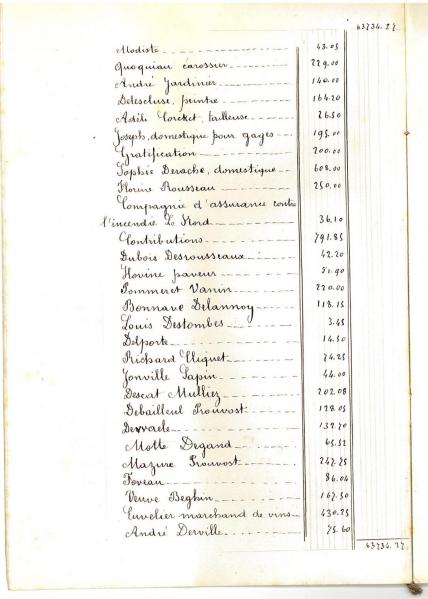 63734.27
Modiste 43.05
Quoquiau carossier 229.00
André Jardinier 140.00
Delescluse, peintre 164.20
Adèle Corcket, tailleuse 26.50
Joseph, domestique pour gages 195.00
Gratification 200.00
Sophie Derache, domestique 608.00
Florine Rousseau 250.00
Compagnie d'assurance contre
l'incendie Le Nord 36.10
Contributions 791.85
Dubois Desrousseaux 42.20
Hovine paveur 51.90
Pommeret Vanin 220.00
Bonnave Delannoy 118.15
Louis Destombes 3.45
Delporte 14.50
Richard Cliquet 74.25
Jonville Sapin 44.00
Descat Mulliez 202.08
Debailleul Prouvost 128.05
Dervaele 132.70
Motte Degand 65.52
Mazure Prouvost 247.75
Foveau 86.04
Veuve Beghin 167.50
Cuvelier marchand de vins 430.25
André Derville 75.60
63734.27